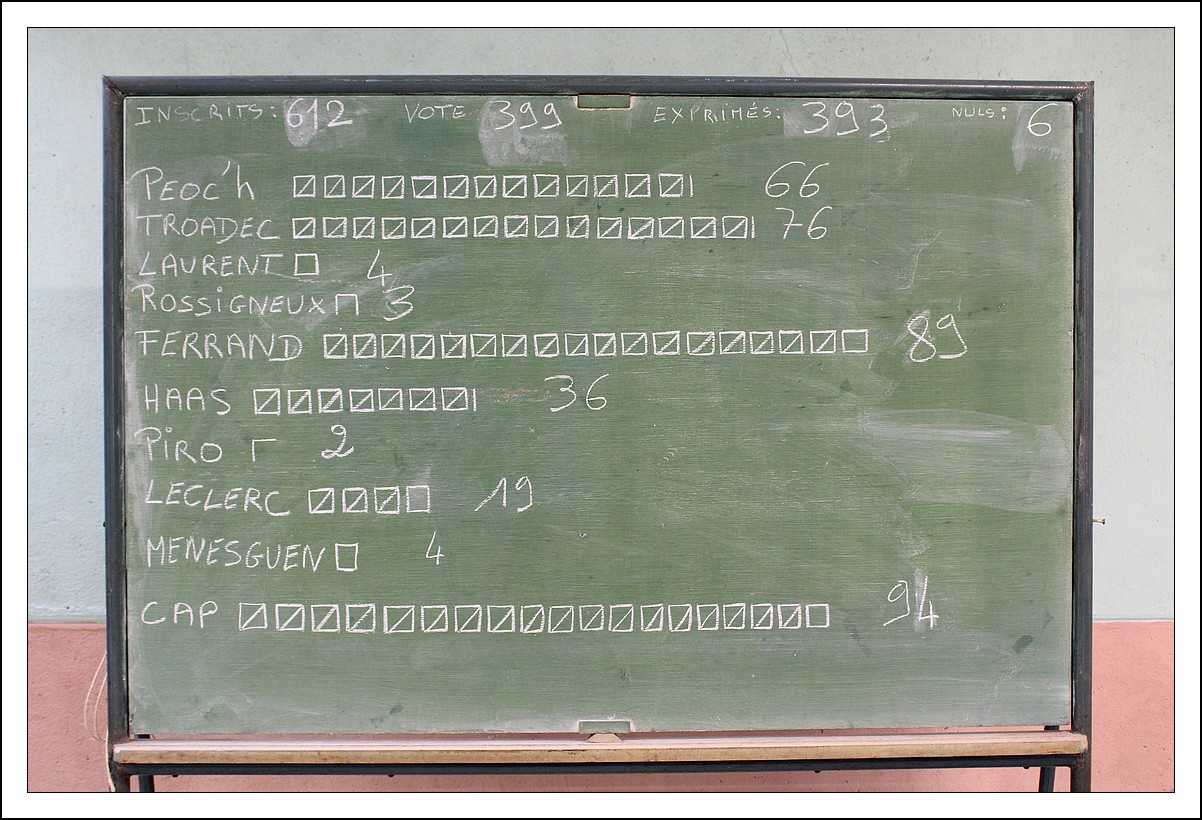 INSCRITS: 612 VOTE 399 EXPRIMÉS: 393 NULS: 6
PEOC'h 66
TROADEC 76
LAURENT 4
ROSSIGNEUX 3
FERRAND 89
HAAS 36
PIRO 2
LECLERC 19
MENESGUEN 4
CAP 94